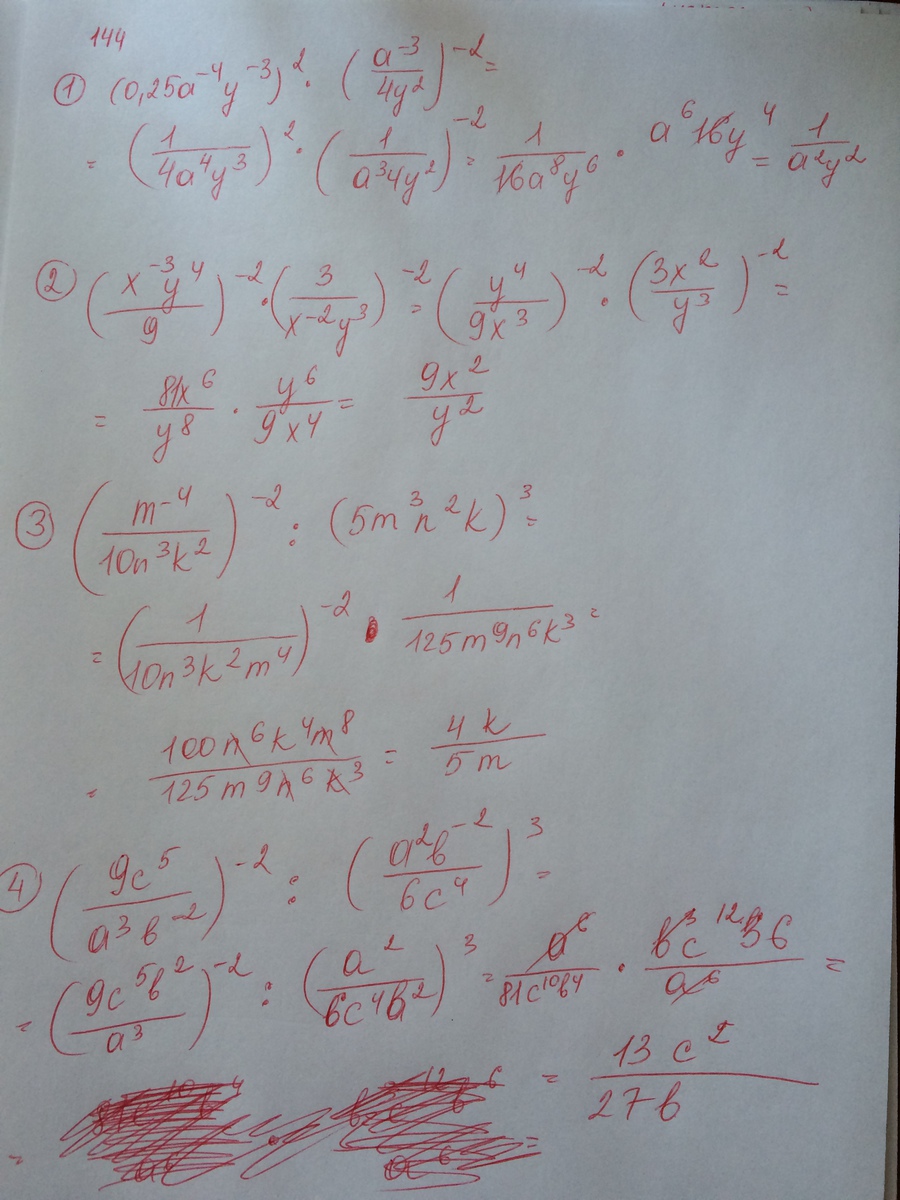 144
① (0,25a⁻⁴y⁻³)² · (a⁻³/4y²)⁻² =
= (1/4a⁴y³)² · (1/a³4y²)⁻² = 1/16a⁸y⁶ · a⁶16y⁴ = 1/a²y²
② (x⁻³y⁴/9)⁻² · (3/x⁻²y³)⁻² = (y⁴/9x³)⁻² · (3x²/y³)⁻² =
= 81x⁶/y⁸ · y⁶/9x⁴ = 9x²/y²
③ (m⁻⁴/10n³k²)⁻² : (5m³n²k)³ =
= (1/10n³k²m⁴)⁻² · 1/125m⁹n⁶k³ =
= 100n⁶k⁴m⁸/125m⁹n⁶k³ = 4k/5m
④ (9c⁵/a³b⁻²)⁻² : (a²b⁻²/6c⁴)³ =
= (9c⁵b²/a³)⁻² : (a²/6c⁴b²)³ = a⁶/81c¹⁰b⁴ ·
=
= 13c²/27b
=